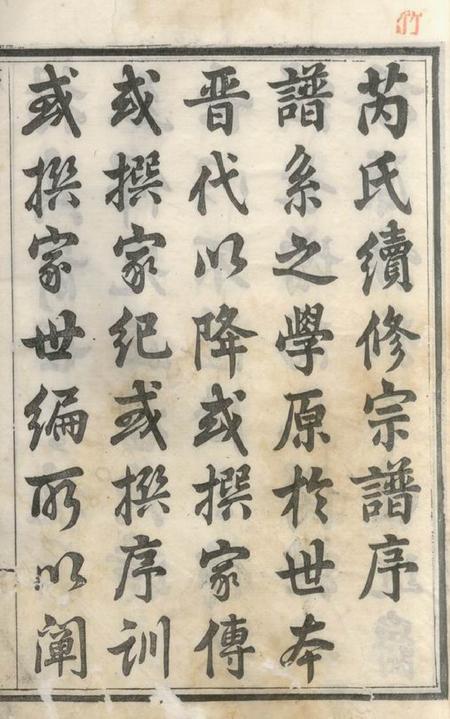 芮氏續修宗譜序
譜系之學原於世本
晉代以降或撰家傳
或撰家紀或撰序訓
或撰家世編所以闡